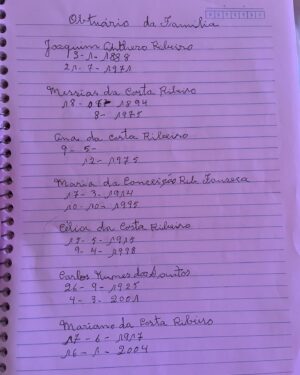 Obtuário da Família
Joaquim Anthero Ribeiro
13-1-1888
21-7-1971
Messias da Costa Ribeiro
18- 1894
8-1975
Ana da Costa Ribeiro
9-5-
12-1975
Maria da Conceição Rib. Fonseca
17-3-1914
10-10-1995
Célia da Costa Ribeiro
15-5-1915
9-4-1998
Carlos Nunes dos Santos
26-9-1925
4-3-2001
Mariano da Costa Ribeiro
17-6-1917
16-1-2004